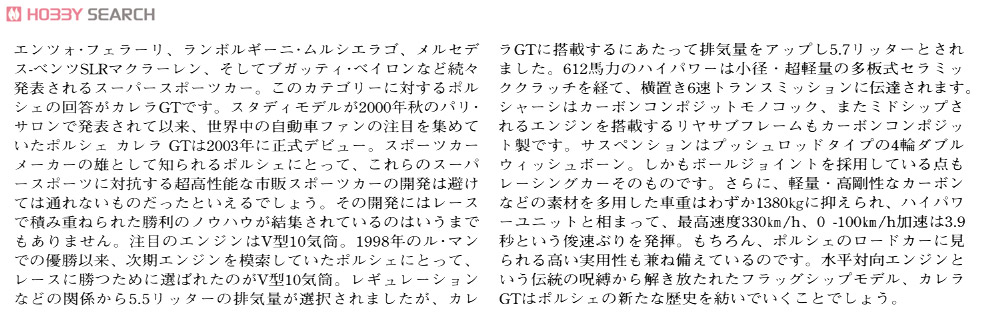 HOBBY SEARCH
エンツォ・フェラーリ、ランボルギーニ・ムルシエラゴ、メルセデ
ス-ベンツSLRマクラーレン、そしてブガッティ・ベイロンなど続々
発表されるスーパースポーツカー。このカテゴリーに対するポル
シェの回答がカレラGTです。スタディモデルが2000年秋のパリ・
サロンで発表されて以来、世界中の自動車ファンの注目を集めて
いたポルシェ カレラ GTは2003年に正式デビュー。スポーツカー
メーカーの雄として知られるポルシェにとって、これらのスーパ
ースポーツに対抗する超高性能な市販スポーツカーの開発は避け
ては通れないものだったといえるでしょう。その開発にはレース
で積み重ねられた勝利のノウハウが結集されているのはいうまで
もありません。注目のエンジンはV型10気筒。1998年のル・マン
での優勝以来、次期エンジンを模索していたポルシェにとって、
レースに勝つために選ばれたのがV型10気筒。レギュレーション
などの関係から5.5リッターの排気量が選択されましたが、カレ
ラGTに搭載するにあたって排気量をアップし5.7リッターとされ
ました。612馬力のハイパワーは小径・超軽量の多板式セラミッ
ククラッチを経て、横置き6速トランスミッションに伝達されます。
シャーシはカーボンコンポジットモノコック、またミドシップさ
れるエンジンを搭載するリヤサブフレームもカーボンコンポジッ
ト製です。サスペンションはプッシュロッドタイプの4輪ダブル
ウィッシュボーン。しかもボールジョイントを採用している点も
レーシングカーそのものです。さらに、軽量・高剛性なカーボン
などの素材を多用した車重はわずか1380㎏に抑えられ、ハイパワ
ーユニットと相まって、最高速度330㎞/h、0 -100㎞/h加速は3.9
秒という俊速ぶりを発揮。もちろん、ポルシェのロードカーに見
られる高い実用性も兼ね備えているのです。水平対向エンジンと
いう伝統の呪縛から解き放たれたフラッグシップモデル、カレラ
GTはポルシェの新たな歴史を紡いでいくことでしょう。